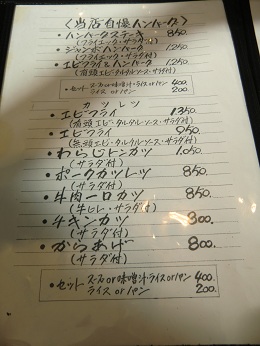 〈当店自慢ハンバーグ〉
・ハンバーグステーキ 850.
(フライエッグ・サラダ付)
・ジャンボハンバーグ 1250.
(フライエッグ・サラダ付)
・エビフライとハンバーグ 1250.
(有頭エビ・タルタルソース・サラダ付)
・セット スープor味噌汁・ライスorパン 400.
ライスorパン 200.
カツレツ
・エビフライ 1350.
(有頭エビ・タルタルソース・サラダ付)
・エビフライ 950.
(無頭エビ・タルタルソース・サラダ付)
・わらじトンカツ 1.050
(サラダ付)
・ポークカツレツ 850.
(サラダ付)
・牛肉一口カツ 850.
(牛ヒレ・サラダ付)
・チキンカツ 800.
(サラダ付)
・からあげ 800.
(サラダ付)
・セット スープor味噌汁・ライスorパン 400.
ライスorパン 200.